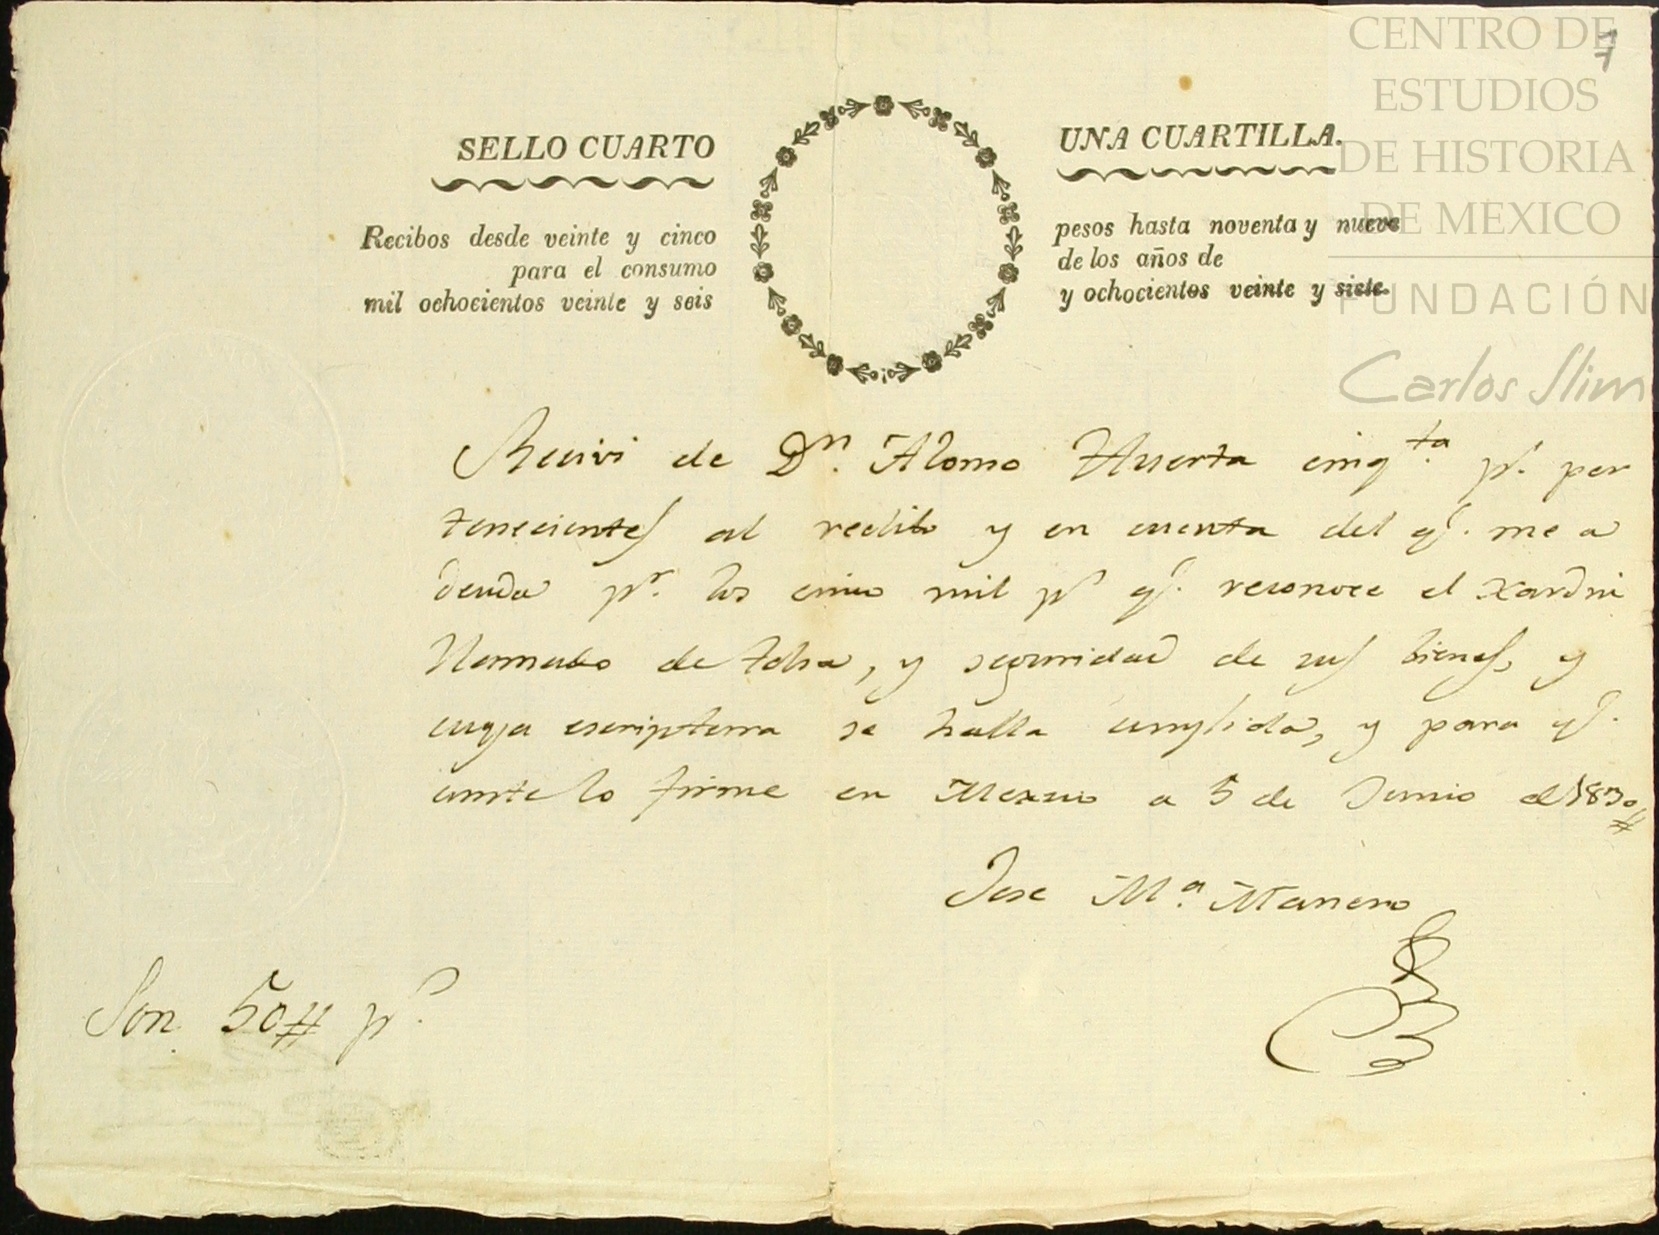 CENTRO DE
ESTUDIOS
DE HISTORIA
DE MEXICO
FUNDACIÓN
Carlos Slim
7
SELLO CUARTO UNA CUARTILLA.
Recibos desde veinte y cinco pesos hasta noventa y nueve
para el consumo de los años de
mil ochocientos veinte y seis y ochocientos veinte y siete.
Recivi de Dn. Alonso Huerta cinqta. ps. per
tenecientes al redito y en cuenta del qe. me a
deuda pr. los cinco mil ps qe. reconoce el Xardin
llamado de Tolsa, y seguridad de sus bienes, y
cuya escriptura se halla cumplida, y para qe.
conste lo firme en Mexico a 5 de Junio de 1830
Jose Ma. Manero
Son 50 ps.